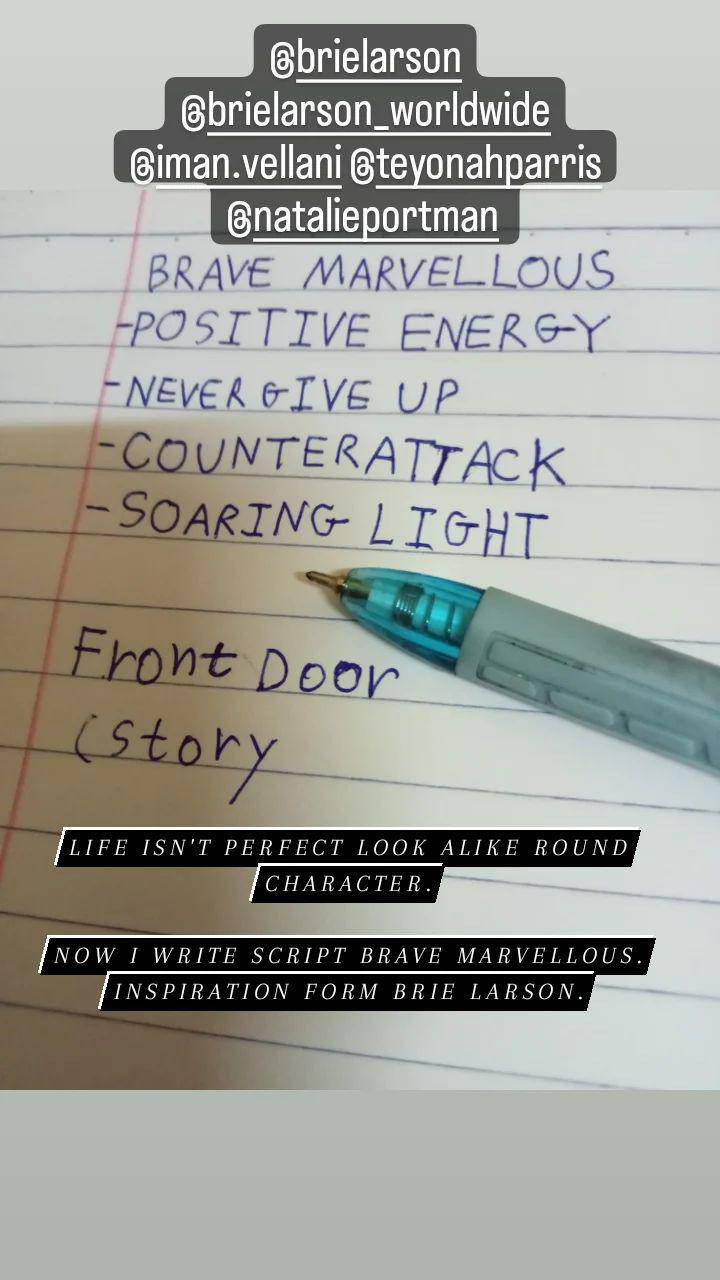 @brielarson
@brielarson_worldwide
@iman.vellani @teyonahparris
@natalieportman
BRAVE MARVELLOUS
-POSITIVE ENERGY
-NEVER GIVE UP
-COUNTERATTACK
-SOARING LIGHT
Front Door
(story
LIFE ISN'T PERFECT LOOK ALIKE ROUND
CHARACTER.
NOW I WRITE SCRIPT BRAVE MARVELLOUS.
INSPIRATION FORM BRIE LARSON.